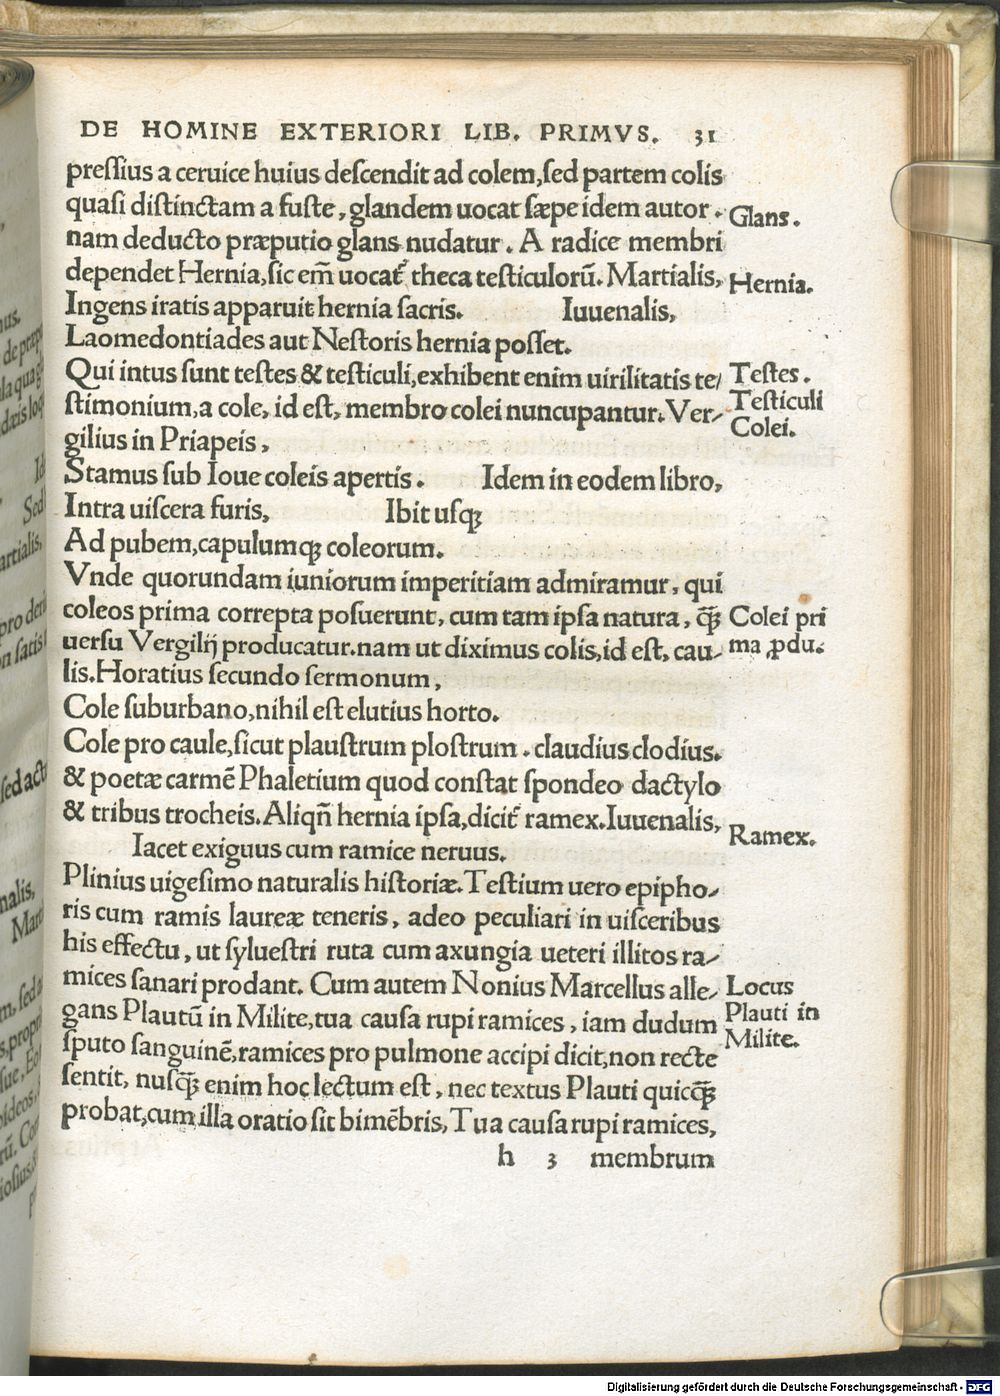 DE HOMINE EXTERIORI LIB. PRIMVS. 31
preſſius a ceruice huius deſcendit ad colem, ſed partem colis
quaſi diſtinctam a fuſte, glandem uocat ſæpe idem autor.
Glans.
nam deducto præputio glans nudatur. A radice membri
dependet Hernia, ſic em̃ uocat᷑ theca teſticuloꝝ̃. Martialis,
Hernia.
Ingens iratis apparuit hernia ſacris. Iuuenalis,
Laomedontiades aut Neſtoris hernia poſſet.
Qui intus ſunt teſtes & teſticuli, exhibent enim uirilitatis te/
Teſtes.
ſtimonium, a cole, id eſt, membro colei nuncupantur. Ver/
Teſticuli
Colei.
gilius in Priapeis,
Stamus ſub Ioue coleis apertis. Idem in eodem libro,
Intra uiſcera furis, Ibit uſqꝫ
Ad pubem, capulumqꝫ coleorum.
Vnde quorundam iuniorum imperitiam admiramur, qui
coleos prima correpta poſuerunt, cum tam ipſa natura, q̃ꝫ
Colei pri
uerſu Vergilij producatur. nam ut diximus colis, id eſt, cau/
ma ꝓdu.
lis. Horatius ſecundo ſermonum,
Cole ſuburbano, nihil eſt elutius horto.
Cole pro caule, ſicut plauſtrum ploſtrum. claudius clodius.
& poetæ carmẽ Phaletium quod conſtat ſpondeo dactylo
& tribus trocheis. Aliqñ hernia ipſa, dicit᷑ ramex. Iuuenalis,
Ramex.
Iacet exiguus cum ramice neruus.
Plinius uigeſimo naturalis hiſtoriæ. Teſtium uero epipho/
ris cum ramis laureæ teneris, adeo peculiari in uiſceribus
his effectu, ut ſylueſtri ruta cum axungia ueteri illitos ra/
mices ſanari prodant. Cum autem Nonius Marcellus alle/
Locus
gans Plautũ in Milite, tua cauſa rupi ramices, iam dudum
Plauti in
ſputo ſanguinẽ, ramices pro pulmone accipi dicit, non recte
Milite.
ſentit, nuſq̃ꝫ enim hoc lectum eſt, nec textus Plauti quicq̃ꝫ
probat, cum illa oratio ſit bimẽbris, Tua cauſa rupi ramices,
h 3 membrum
Digitalisierung gefördert durch die Deutsche Forschungsgemeinschaft - DFG